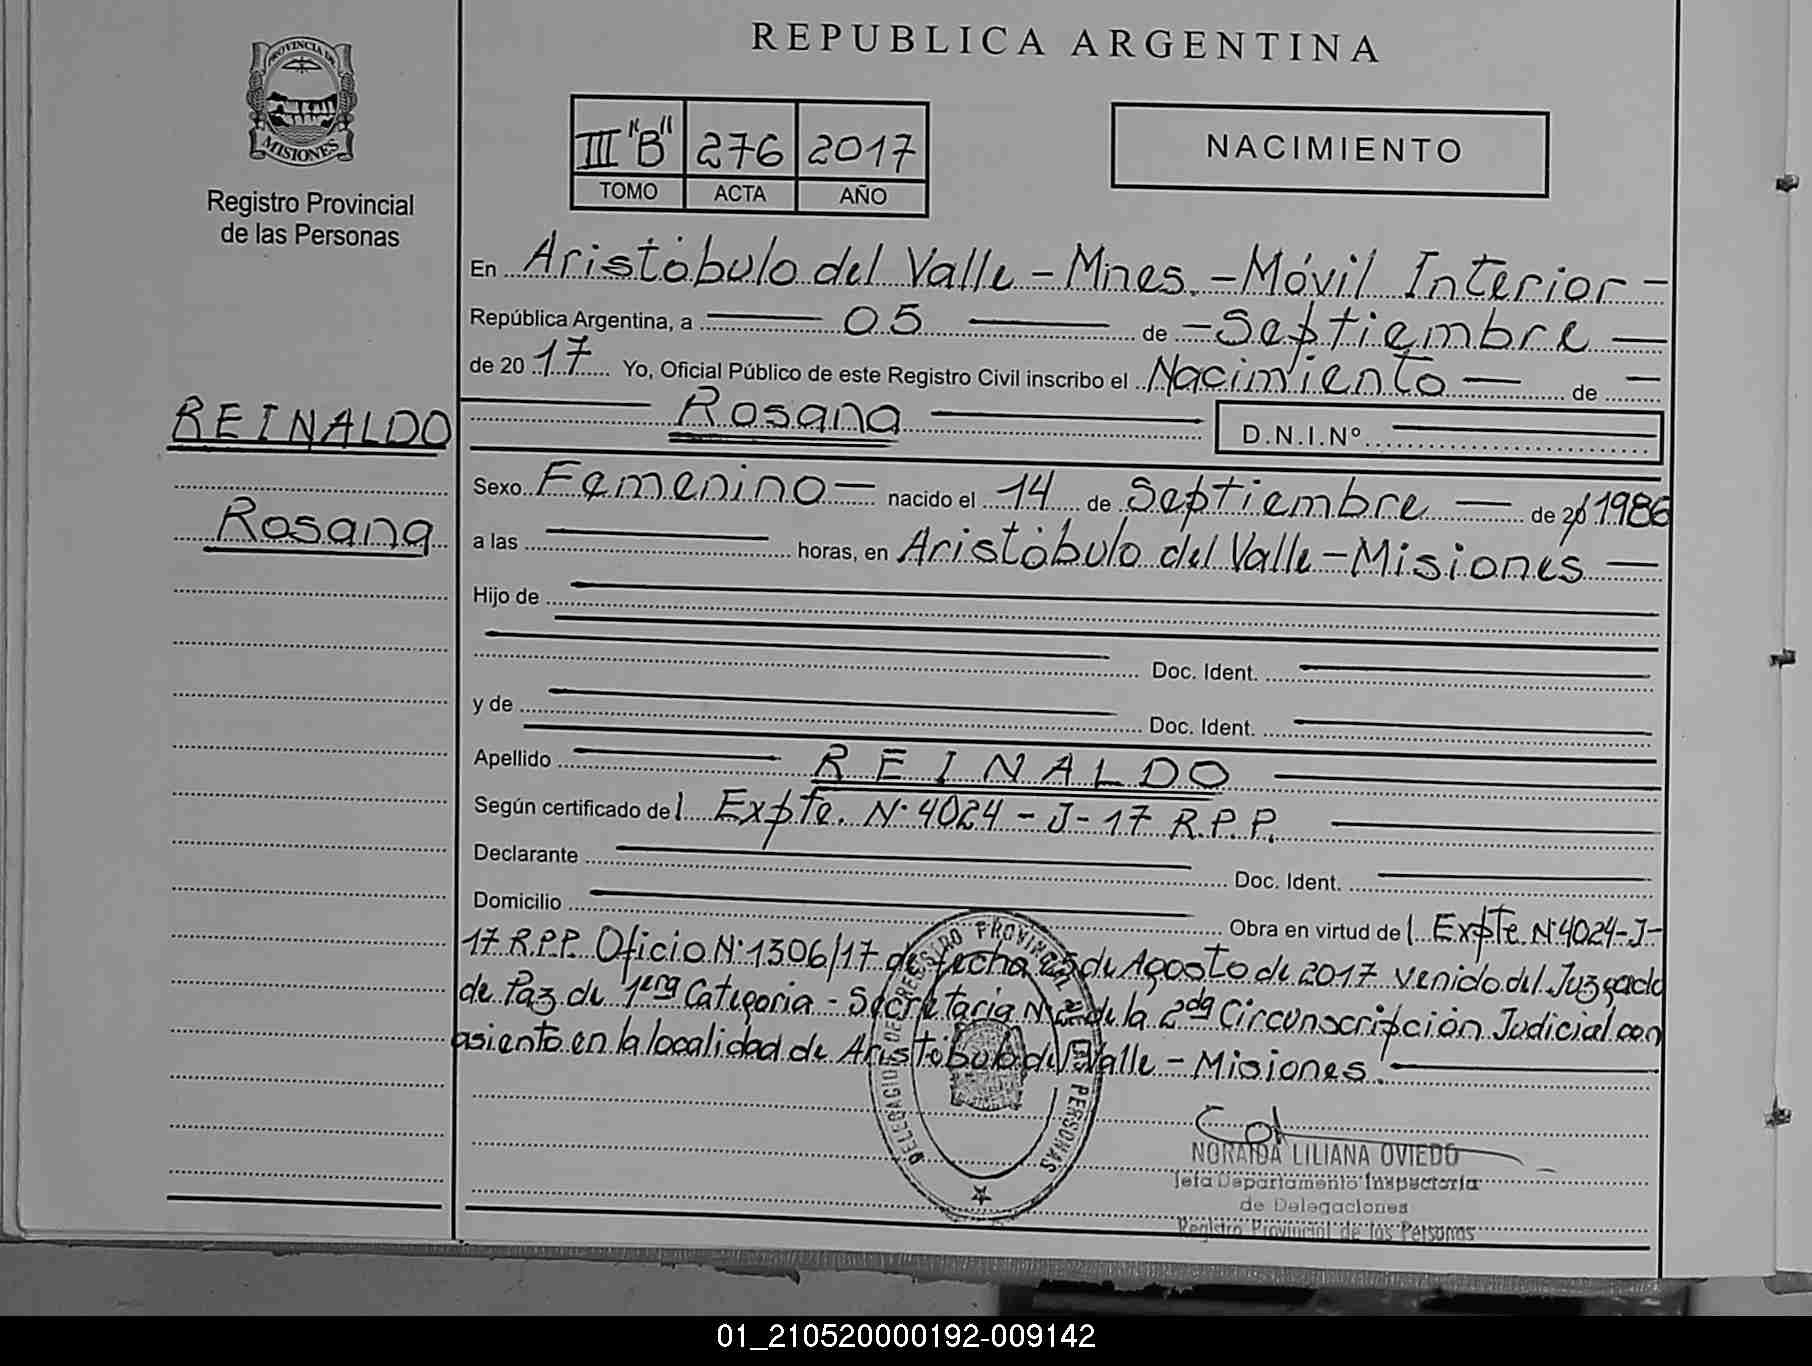 REPUBLICA ARGENTINA
PROVINCIA DE
MISIONES
Registro Provincial
de las Personas
III "B" 276 2017
TOMO ACTA AÑO
NACIMIENTO
En Aristóbulo del Valle - Mnes. - Móvil Interior -
República Argentina, a 05 de Septiembre
de 2017 Yo, Oficial Público de este Registro Civil inscribo el Nacimiento de
Rosana D.N.I.Nº
REINALDO
Rosana
Sexo Femenino nacido el 14 de Septiembre de 20 1986
a las horas, en Aristóbulo del Valle - Misiones
Hijo de
Doc. Ident.
y de Doc. Ident.
Apellido REINALDO
Según certificado del Expte. Nº 4024 - J - 17 R.P.P.
Declarante Doc. Ident.
Domicilio Obra en virtud del Expte. Nº 4024-J-
17 R.P.P. Oficio Nº 1306/17 de fecha 25 de Agosto de 2017 venido del Juzgado
de Paz de 1era Categoria - Secretaria Nº 2 de la 2da Circunscripción Judicial con
asiento en la localidad de Aristóbulo del Valle - Misiones.
REGISTRO PROVINCIAL PERSONAS
NORAIDA LILIANA OVIEDO
Jefa Departamento Inspectoria
de Delegaciones
Registro Provincial de las Personas
01_210520000192-009142